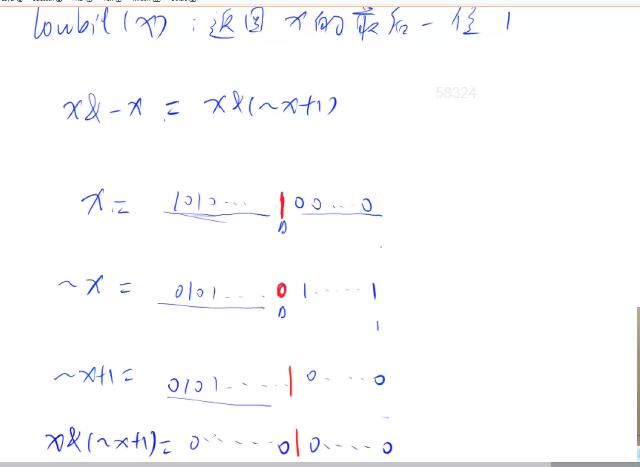 lowbit(x) : 返回 x的最后一位 1
x&-x = x&(~x+1)
58324
x= 1010... 100...0
~x = 0101.... 01.....1
1
~x+1= 0101.....10....0
x&(~x+1)= 0......010....0